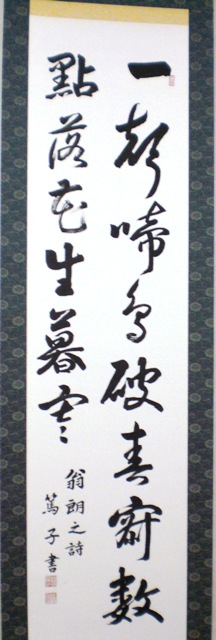 一聲啼鳥破春寂數
點落花生暮寒
翁朗之詩
篤子書